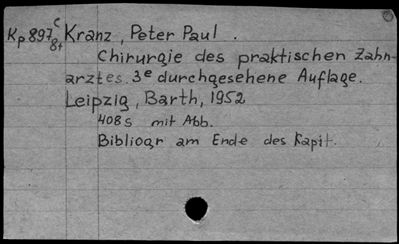 Kp 897 c 8t Kranz, Peter Paul.
Chirurgie des praktischen Zahn-
arztes. 3e durchgesehene Auflage.
Leipzig, Barth, 1952
408 s mit Abb.
Bibliogr am Ende des Kapit.